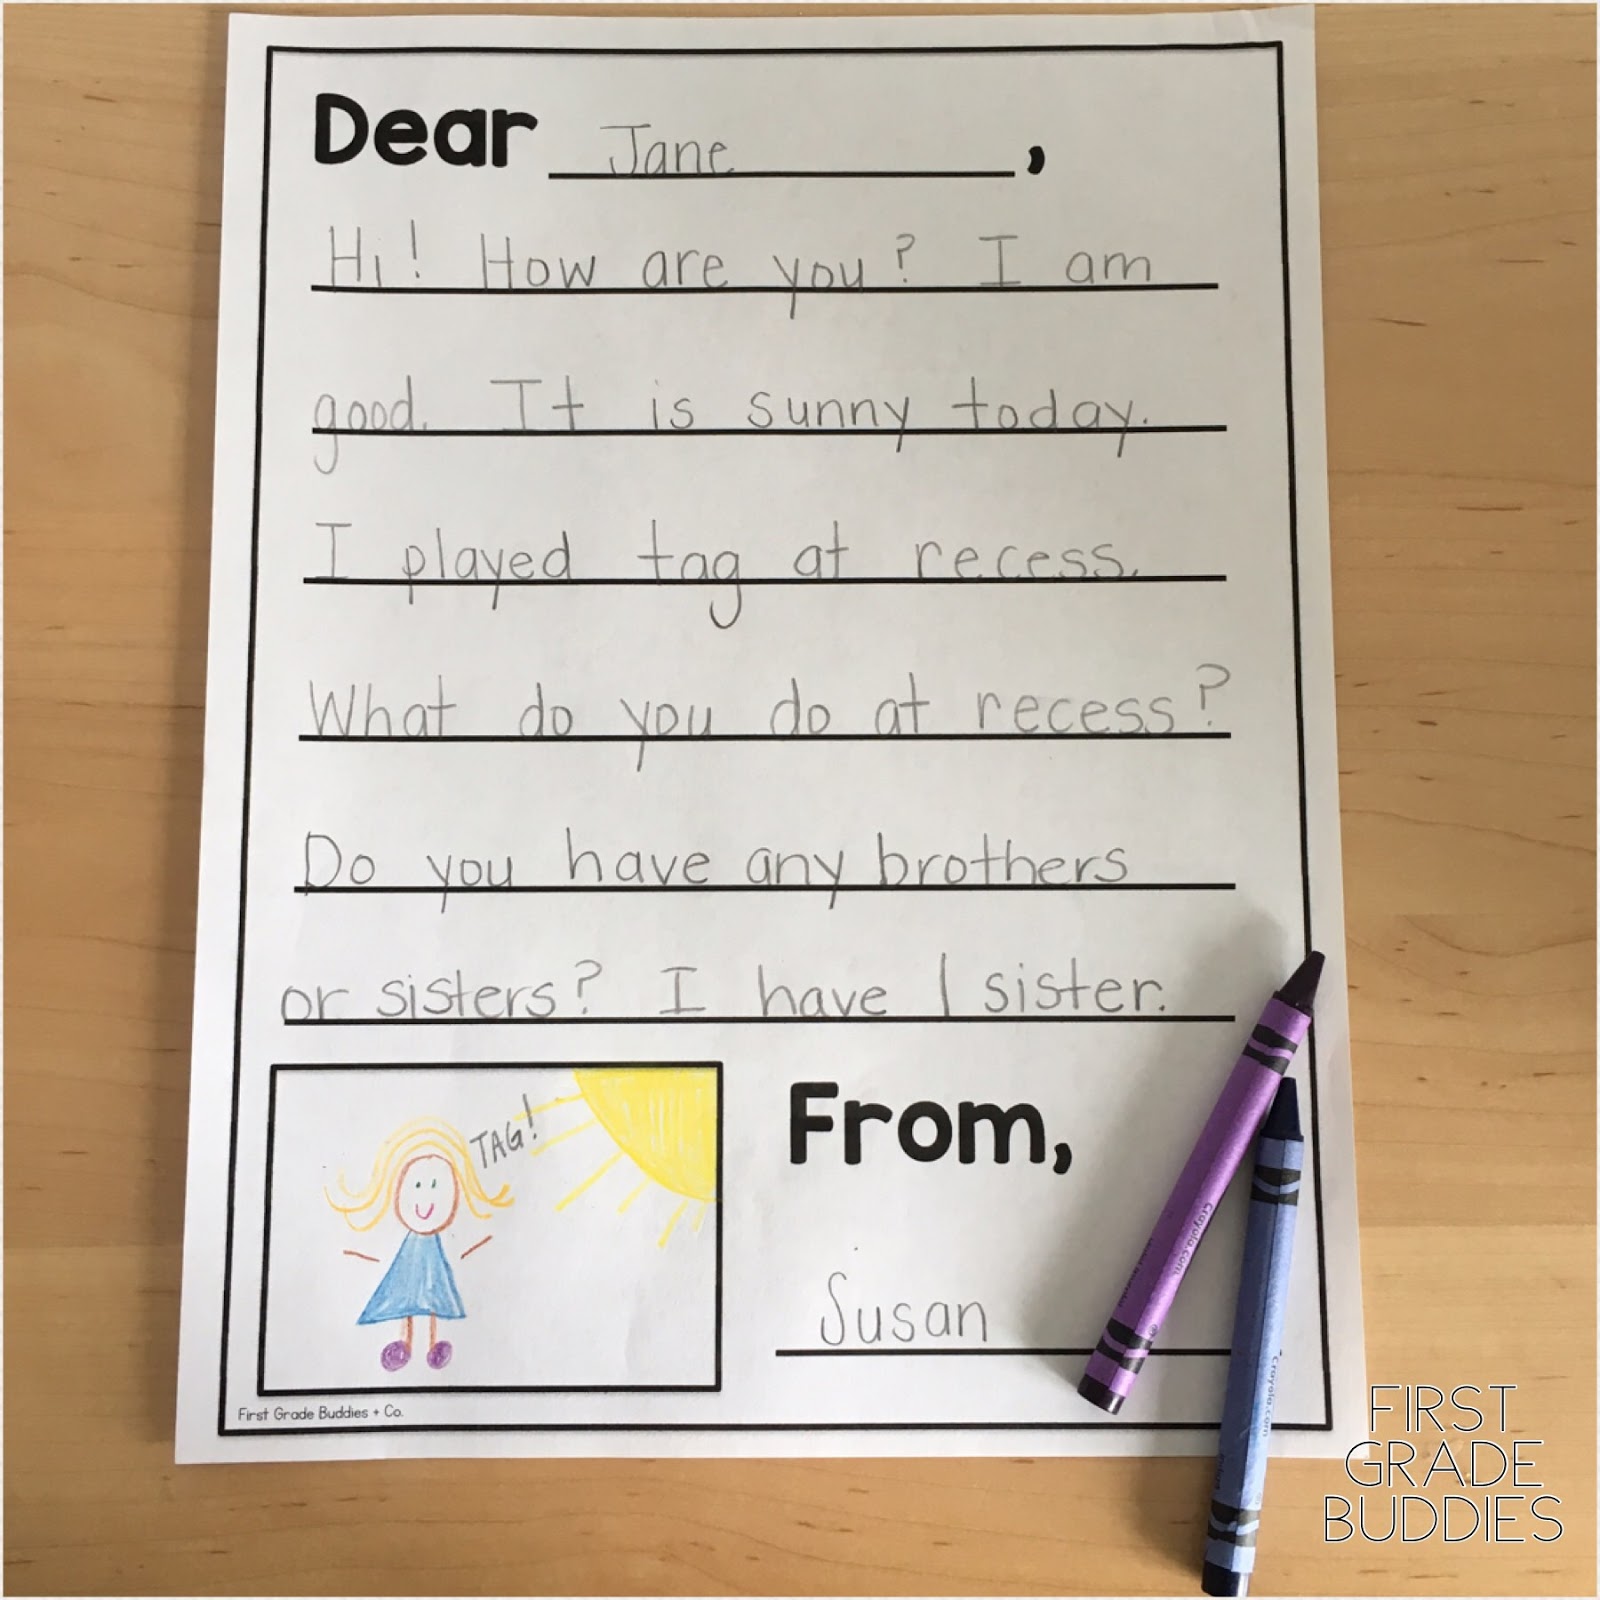 Dear Jane,
Hi! How are you? I am
good. It is sunny today.
I played tag at recess.
What do you do at recess?
Do you have any brothers
or sisters? I have 1 sister.
TAG!
From,
Susan
First Grade Buddies + Co.
Crayola.com
crayola.com
FIRST
GRADE
BUDDIES